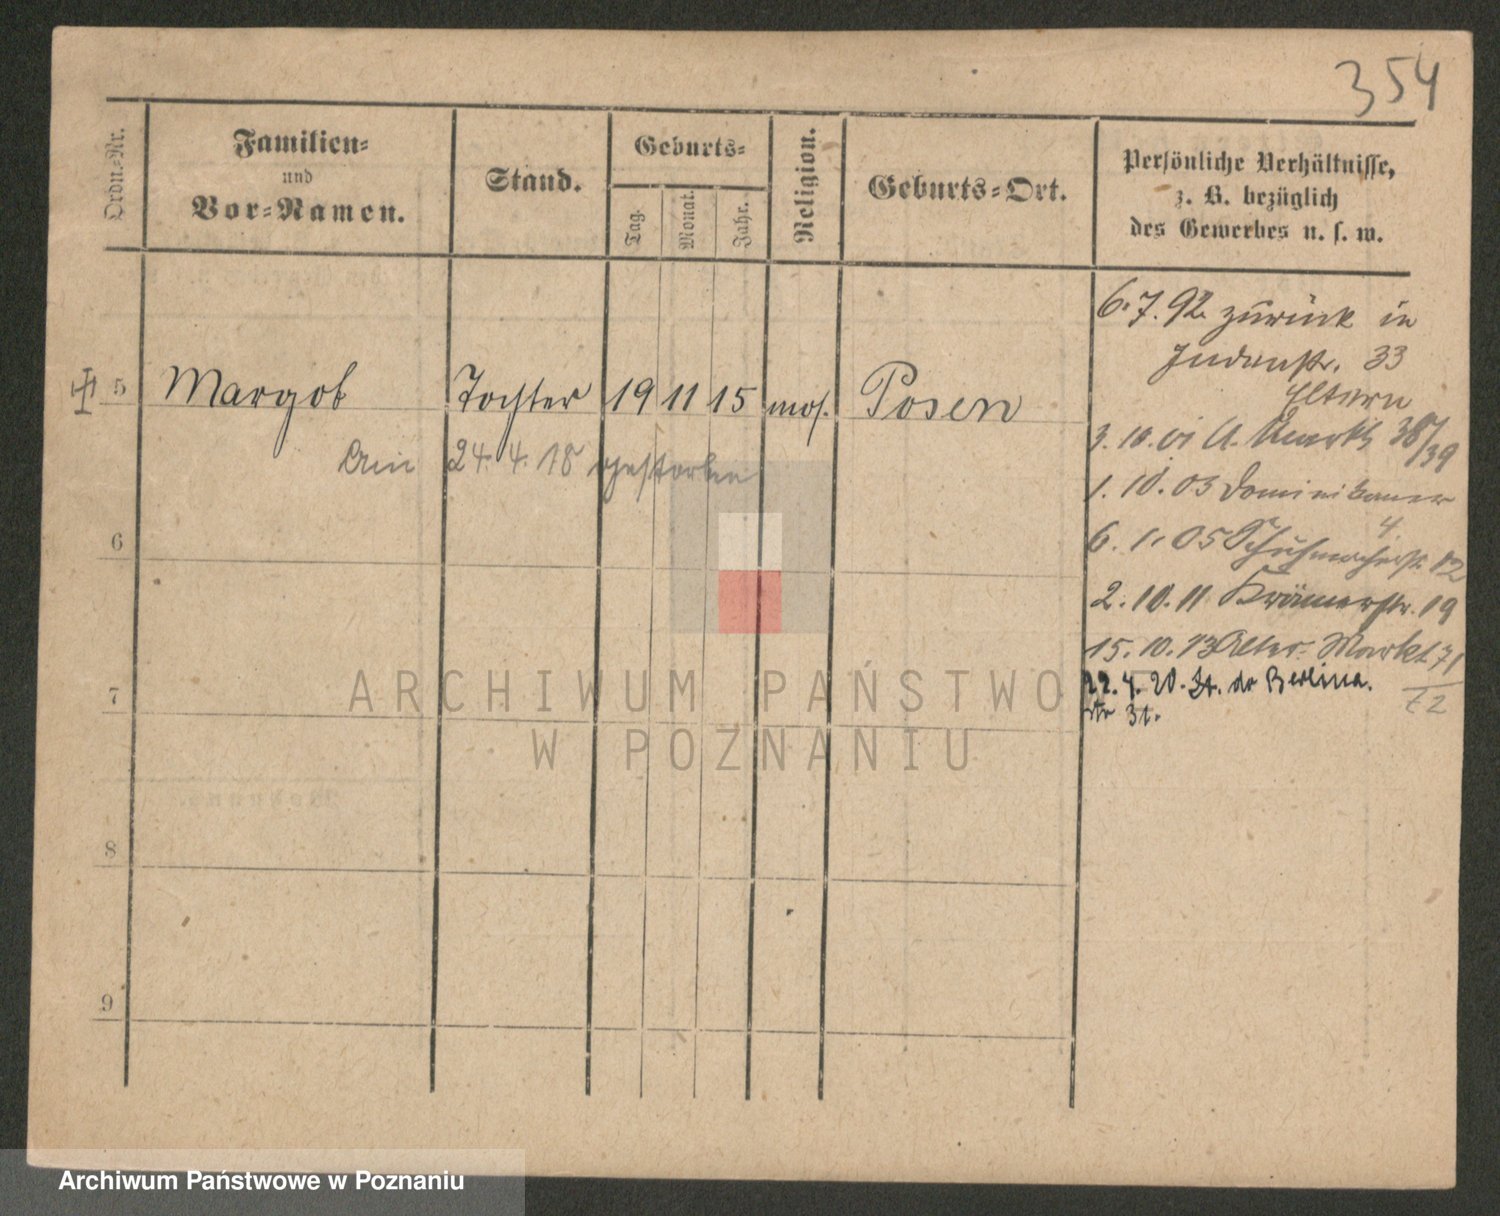 354
Ordn.-Nr.
Familien-
und
Vor-Namen.
Stand.
Geburts-
Tag.
Monat.
Jahr.
Religion.
Geburts-Ort.
Persönliche Verhältnisse,
z. B. bezüglich
des Gewerbes u. s. w.
6.7.92 zurück in
Judenstr. 33
Eltern
5 Margot Tochter 19 11 15 mos. Posen
3. 10. 01 A. Markt 38/39
24. 4. 18 gestorben
1. 10. 03 Dominikaner
4.
6
6. 1. 05 Schuhmacherstr. 12
2. 10. 11 Krämerstr. 19
15. 10. 13 Alter Markt 71
72
7
22. 4. 20. St. do Berlina.
str 31.
8
9
ARCHIWUM PAŃSTWO
W POZNANIU
Archiwum Państwowe w Poznaniu